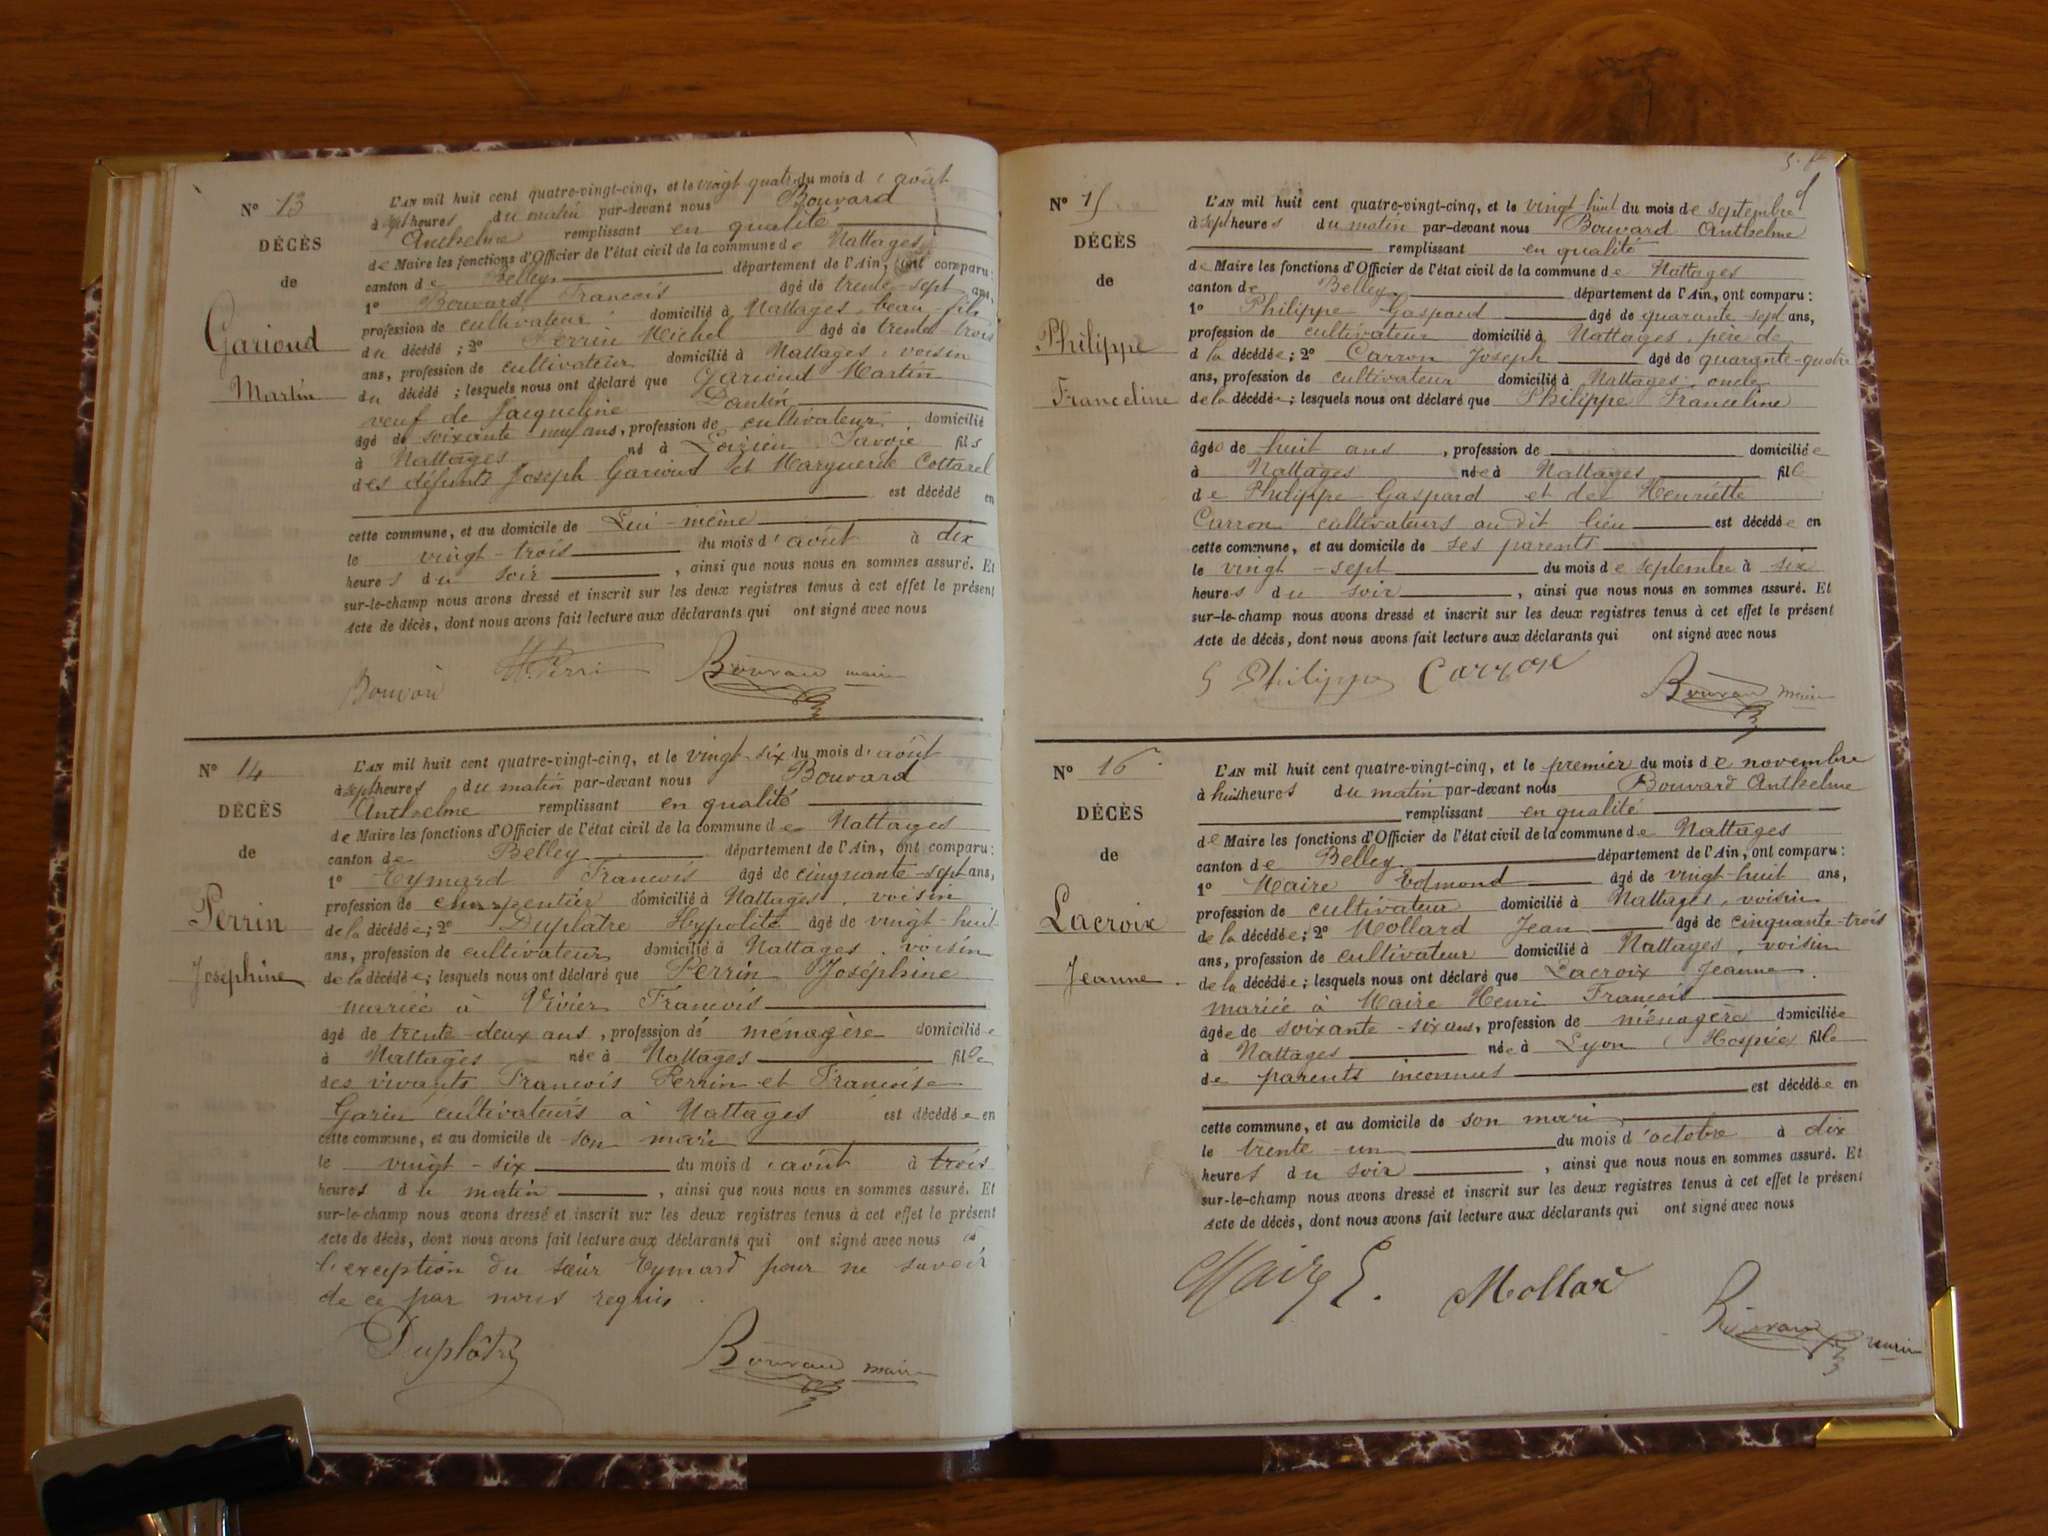 N° 13
DÉCÈS
de
Gariond
Martin
L'AN mil huit cent quatre-vingt-cinq, et le vingt-quatre du mois d'août
à sept heures du matin par-devant nous Bouvard
Anthelme remplissant en qualité
de Maire les fonctions d'Officier de l'état civil de la commune de Nattages
canton de Belley département de l'Ain, ont comparu:
1° Bouvard François âgé de trente-sept ans,
profession de cultivateur domicilié à Nattages, beau-fils
du décédé; 2° Perrin Michel âgé de trente-trois
ans, profession de cultivateur domicilié à Nattages, voisin
du décédé; lesquels nous ont déclaré que Gariond Martin
veuf de Jacqueline Dantin
âgé de soixante-neuf ans, profession de cultivateur domicilié
à Nattages né à Savoie fils
des défunts Joseph Gariond et Marguerite Cottarel
est décédé en
cette commune, et au domicile de Lui-même
le vingt-trois du mois d'août à dix
heures du soir, ainsi que nous nous en sommes assuré. Et
sur-le-champ nous avons dressé et inscrit sur les deux registres tenus à cet effet le présent
Acte de décès, dont nous avons fait lecture aux déclarants qui ont signé avec nous
M. Perrin Bouvard maire
N° 14
DÉCÈS
de
Perrin
Joséphine
L'AN mil huit cent quatre-vingt-cinq, et le vingt-six du mois d'août
à sept heures du matin par-devant nous Bouvard
Anthelme remplissant en qualité
de Maire les fonctions d'Officier de l'état civil de la commune de Nattages
canton de Belley département de l'Ain, ont comparu:
1° Eymard François âgé de cinquante-sept ans,
profession de charpentier domicilié à Nattages, voisin
de la décédée; 2° Duplatre Hypolite âgé de vingt-huit
ans, profession de cultivateur domicilié à Nattages, voisin
de la décédée; lesquels nous ont déclaré que Perrin Joséphine
mariée à Vivier François
âgé de trente-deux ans, profession de ménagère domiciliée
à Nattages née à Nattages fille
des vivants François Perrin et Françoise
Garin cultivateurs à Nattages est décédée en
cette commune, et au domicile de son mari
le vingt-six du mois d'août à trois
heures du matin, ainsi que nous nous en sommes assuré. Et
sur-le-champ nous avons dressé et inscrit sur les deux registres tenus à cet effet le présent
Acte de décès, dont nous avons fait lecture aux déclarants qui ont signé avec nous à
l'exception du sieur Eymard pour ne savoir
de ce par nous requis.
Duplâtre Bouvard maire
N° 15
DÉCÈS
de
Philippe
Franceline
L'AN mil huit cent quatre-vingt-cinq, et le vingt-huit du mois de septembre
à sept heures du matin par-devant nous Bouvard Anthelme
remplissant en qualité
de Maire les fonctions d'Officier de l'état civil de la commune de Nattages
canton de Belley département de l'Ain, ont comparu:
1° Philippe Gaspard âgé de quarante-sept ans,
profession de cultivateur domicilié à Nattages, père de
de la décédée; 2° Carron Joseph âgé de quarante-quatre
ans, profession de cultivateur domicilié à Nattages, oncle
de la décédée; lesquels nous ont déclaré que Philippe Franceline
âgée de huit ans, profession de domiciliée
à Nattages née à Nattages fille
de Philippe Gaspard et de Henriette
Carron cultivateurs au dit lieu est décédée en
cette commune, et au domicile de ses parents
le vingt-sept du mois de septembre à six
heures du soir, ainsi que nous nous en sommes assuré. Et
sur-le-champ nous avons dressé et inscrit sur les deux registres tenus à cet effet le présent
Acte de décès, dont nous avons fait lecture aux déclarants qui ont signé avec nous
G Philippe Carron Bouvard maire
N° 16
DÉCÈS
de
Lacroix
Jeanne
L'AN mil huit cent quatre-vingt-cinq, et le premier du mois de novembre
à huit heures du matin par-devant nous Bouvard Anthelme
remplissant en qualité
de Maire les fonctions d'Officier de l'état civil de la commune de Nattages
canton de Belley département de l'Ain, ont comparu:
1° Maire Edmond âgé de vingt-huit ans,
profession de cultivateur domicilié à Nattages, voisin
de la décédée; 2° Mollard Jean âgé de cinquante-trois
ans, profession de cultivateur domicilié à Nattages, voisin
de la décédée; lesquels nous ont déclaré que Lacroix Jeanne
mariée à Maire Henri François
âgée de soixante-six ans, profession de ménagère domiciliée
à Nattages née à Lyon (Hospice) fille
de parents inconnus
est décédée en
cette commune, et au domicile de son mari
le trente-un du mois d'octobre à dix
heures du soir, ainsi que nous nous en sommes assuré. Et
sur-le-champ nous avons dressé et inscrit sur les deux registres tenus à cet effet le présent
Acte de décès, dont nous avons fait lecture aux déclarants qui ont signé avec nous
Maire E. Mollard Bouvard maire